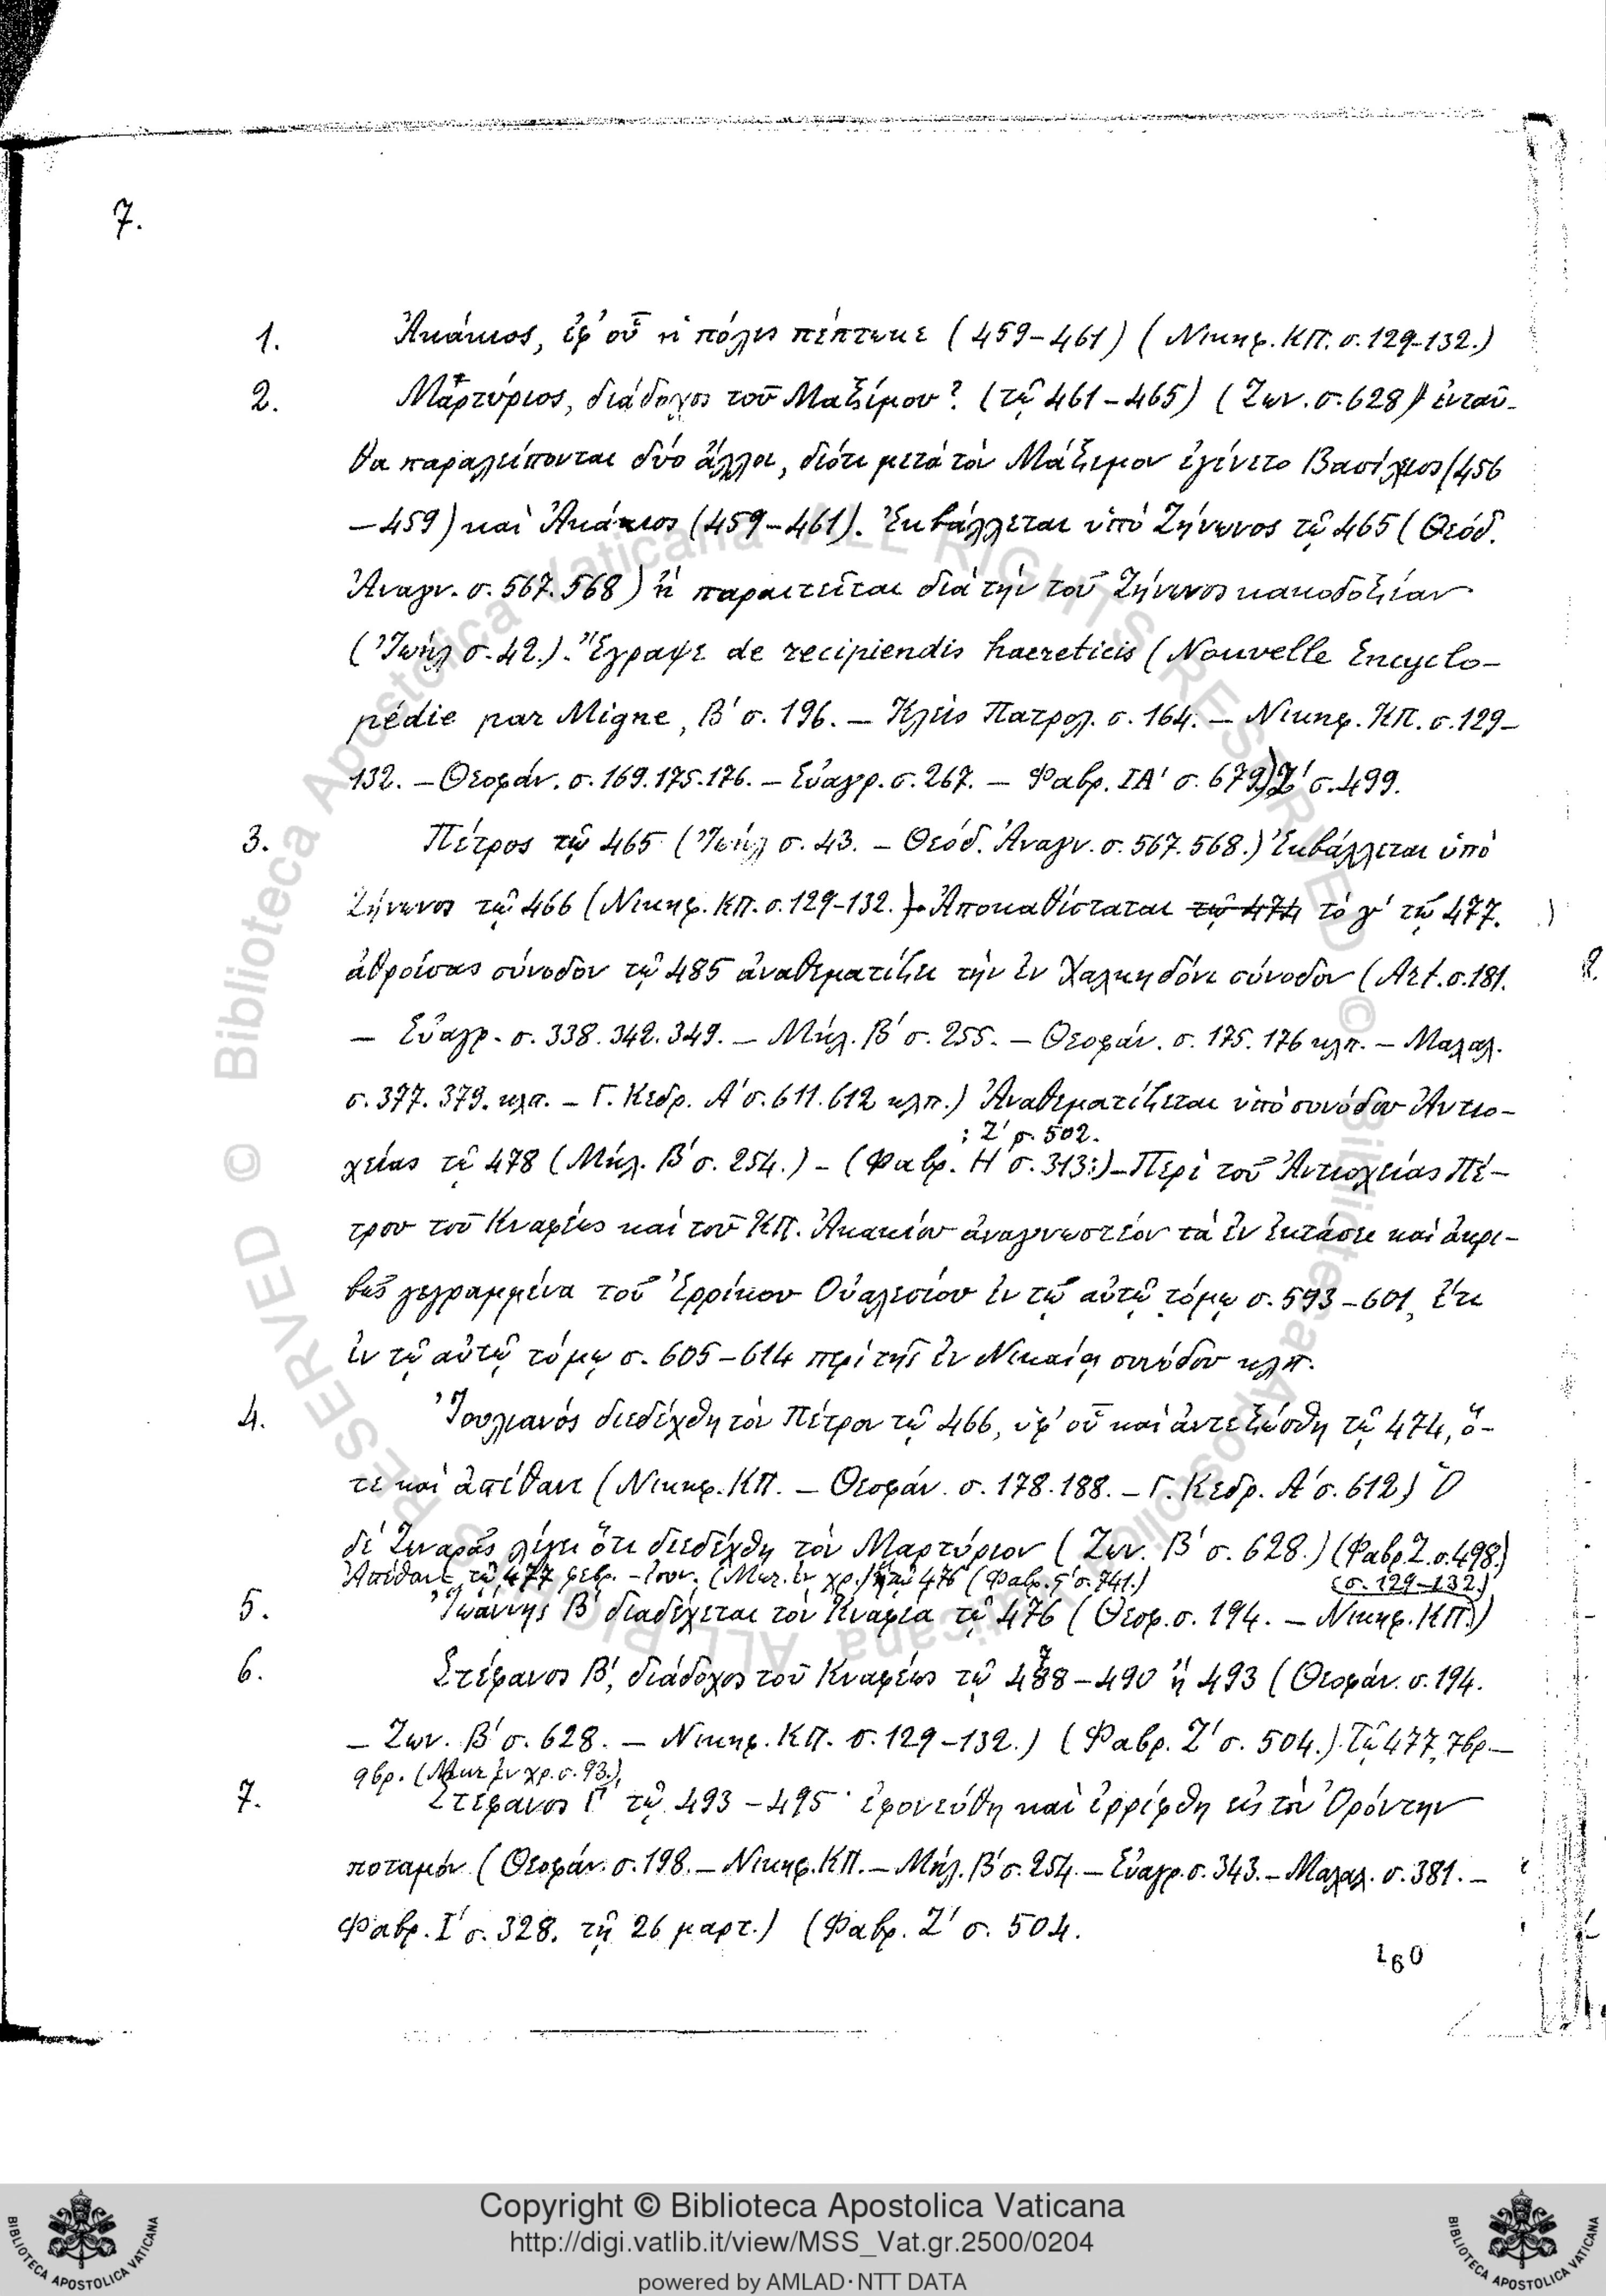 7.
1. Ἀκάκιος, ἐφ' οὗ ἡ πόλις πέπτωκε (459–461) (Νικηφ. ΚΠ. σ. 129-132.)
2. Μαρτύριος, διάδοχος τοῦ Μαξίμου? (τῷ 461–465) (Ζων. σ. 628) ἐνταῦ-
θα παραλείπονται δύο ἄλλοι, διότι μετὰ τὸν Μάξιμον ἐγένετο Βασίλειος (456
–459) καὶ Ἀκάκιος (459–461). Ἐκβάλλεται ὑπὸ Ζήνωνος τῷ 465 (Θεόδ.
Ἀναγν. σ. 567. 568) ἢ παραιτεῖται διὰ τὴν τοῦ Ζήνωνος κακοδοξίαν
(Ἰωήλ σ. 42.). Ἔγραψε de recipiendis haereticis (Nouvelle Encyclo-
pédie par Migne, Β' σ. 196. – Κλεὶς Πατρολ. σ. 164. – Νικηφ. ΚΠ. σ. 129–
132. – Θεοφάν. σ. 169. 175. 176. – Εὐαγρ. σ. 267. – Φαβρ. ΙΑ' σ. 679.) Ζ' σ. 499.
3. Πέτρος τῷ 465 (Ἰωήλ σ. 43. – Θεόδ. Ἀναγν. σ. 567. 568.) Ἐκβάλλεται ὑπὸ
Ζήνωνος τῷ 466 (Νικηφ. ΚΠ. σ. 129-132.). Ἀποκαθίσταται τῷ 474 τὸ γ' τῷ 477.
ἀθροίσας σύνοδον τῷ 485 ἀναθεματίζει τὴν ἐν Χαλκηδόνι σύνοδον (Art. σ. 181.
– Εὐαγρ. σ. 338. 342. 349. – Μήλ. Β' σ. 255. – Θεοφάν. σ. 175. 176 κλπ. – Μαλαλ.
σ. 377. 379. κλπ. – Γ. Κεδρ. Α' σ. 611. 612 κλπ.) Ἀναθεματίζεται ὑπὸ συνόδου Ἀντιο-
: Ζ' σ. 502.
χείας τῷ 478 (Μήλ. Β' σ. 254.) – (Φαβρ. Η' σ. 313:) – Περὶ τοῦ Ἀντιοχείας Πέ-
τρου τοῦ Κναφέως καὶ τοῦ ΚΠ. Ἀκακίου ἀναγνωστέον τὰ ἐν ἐκτάσει καὶ ἀκρι-
βῶς γεγραμμένα τοῦ Ἐρρίκου Οὐαλεσίου ἐν τῷ αὐτῷ τόμῳ σ. 593–601, ἔτι
ἐν τῷ αὐτῷ τόμῳ σ. 605–614 περὶ τῆς ἐν Νικαίᾳ συνόδου κλπ.
4. Ἰουλιανός διεδέχθη τὸν Πέτρον τῷ 466, ὑφ' οὗ καὶ ἀντεξώσθη τῷ 474, ὅ-
τε καὶ ἀπέθανε (Νικηφ. ΚΠ. – Θεοφάν. σ. 178. 188. – Γ. Κεδρ. Α' σ. 612) Ὁ
δὲ Ζωναρᾶς λέγει ὅτι διεδέχθη τὸν Μαρτύριον (Ζων. Β' σ. 628.) (Φαβρ. Ζ. σ. 498.)
Ἀπέθανε τῷ 477 φεβρ. – Ἰουν. (Ματ. ἐν χρ.) ἢ τῷ 476 (Φαβρ. ς' σ. 741.) (σ. 129–132.)
5. Ἰωάννης Β' διαδέχεται τὸν Κναφέα τῷ 476 (Θεοφ. σ. 194. – Νικηφ. ΚΠ.)
6. Στέφανος Β', διάδοχος τοῦ Κναφέως τῷ 488–490 ἢ 493 (Θεοφάν. σ. 194.
– Ζων. Β' σ. 628. – Νικηφ. ΚΠ. σ. 129–132.) (Φαβρ. Ζ' σ. 504.). Τῷ 477, 7βρ.–
9βρ. (Ματ ἐν χρ. σ. 93.)
7. Στέφανος Γ' τῷ 493–495 ἐφονεύθη καὶ ἐρρίφθη εἰς τὸν Ὀρόντην
ποταμόν (Θεοφάν. σ. 198. – Νικηφ. ΚΠ. – Μήλ. Β' σ. 254. – Εὐαγρ. σ. 343. – Μαλαλ. σ. 381. –
Φαβρ. Ι' σ. 328. τῇ 26 μαρτ.) (Φαβρ. Ζ' σ. 504.
160
Copyright © Biblioteca Apostolica Vaticana
http://digi.vatlib.it/view/MSS_Vat.gr.2500/0204
powered by AMLAD·NTT DATA